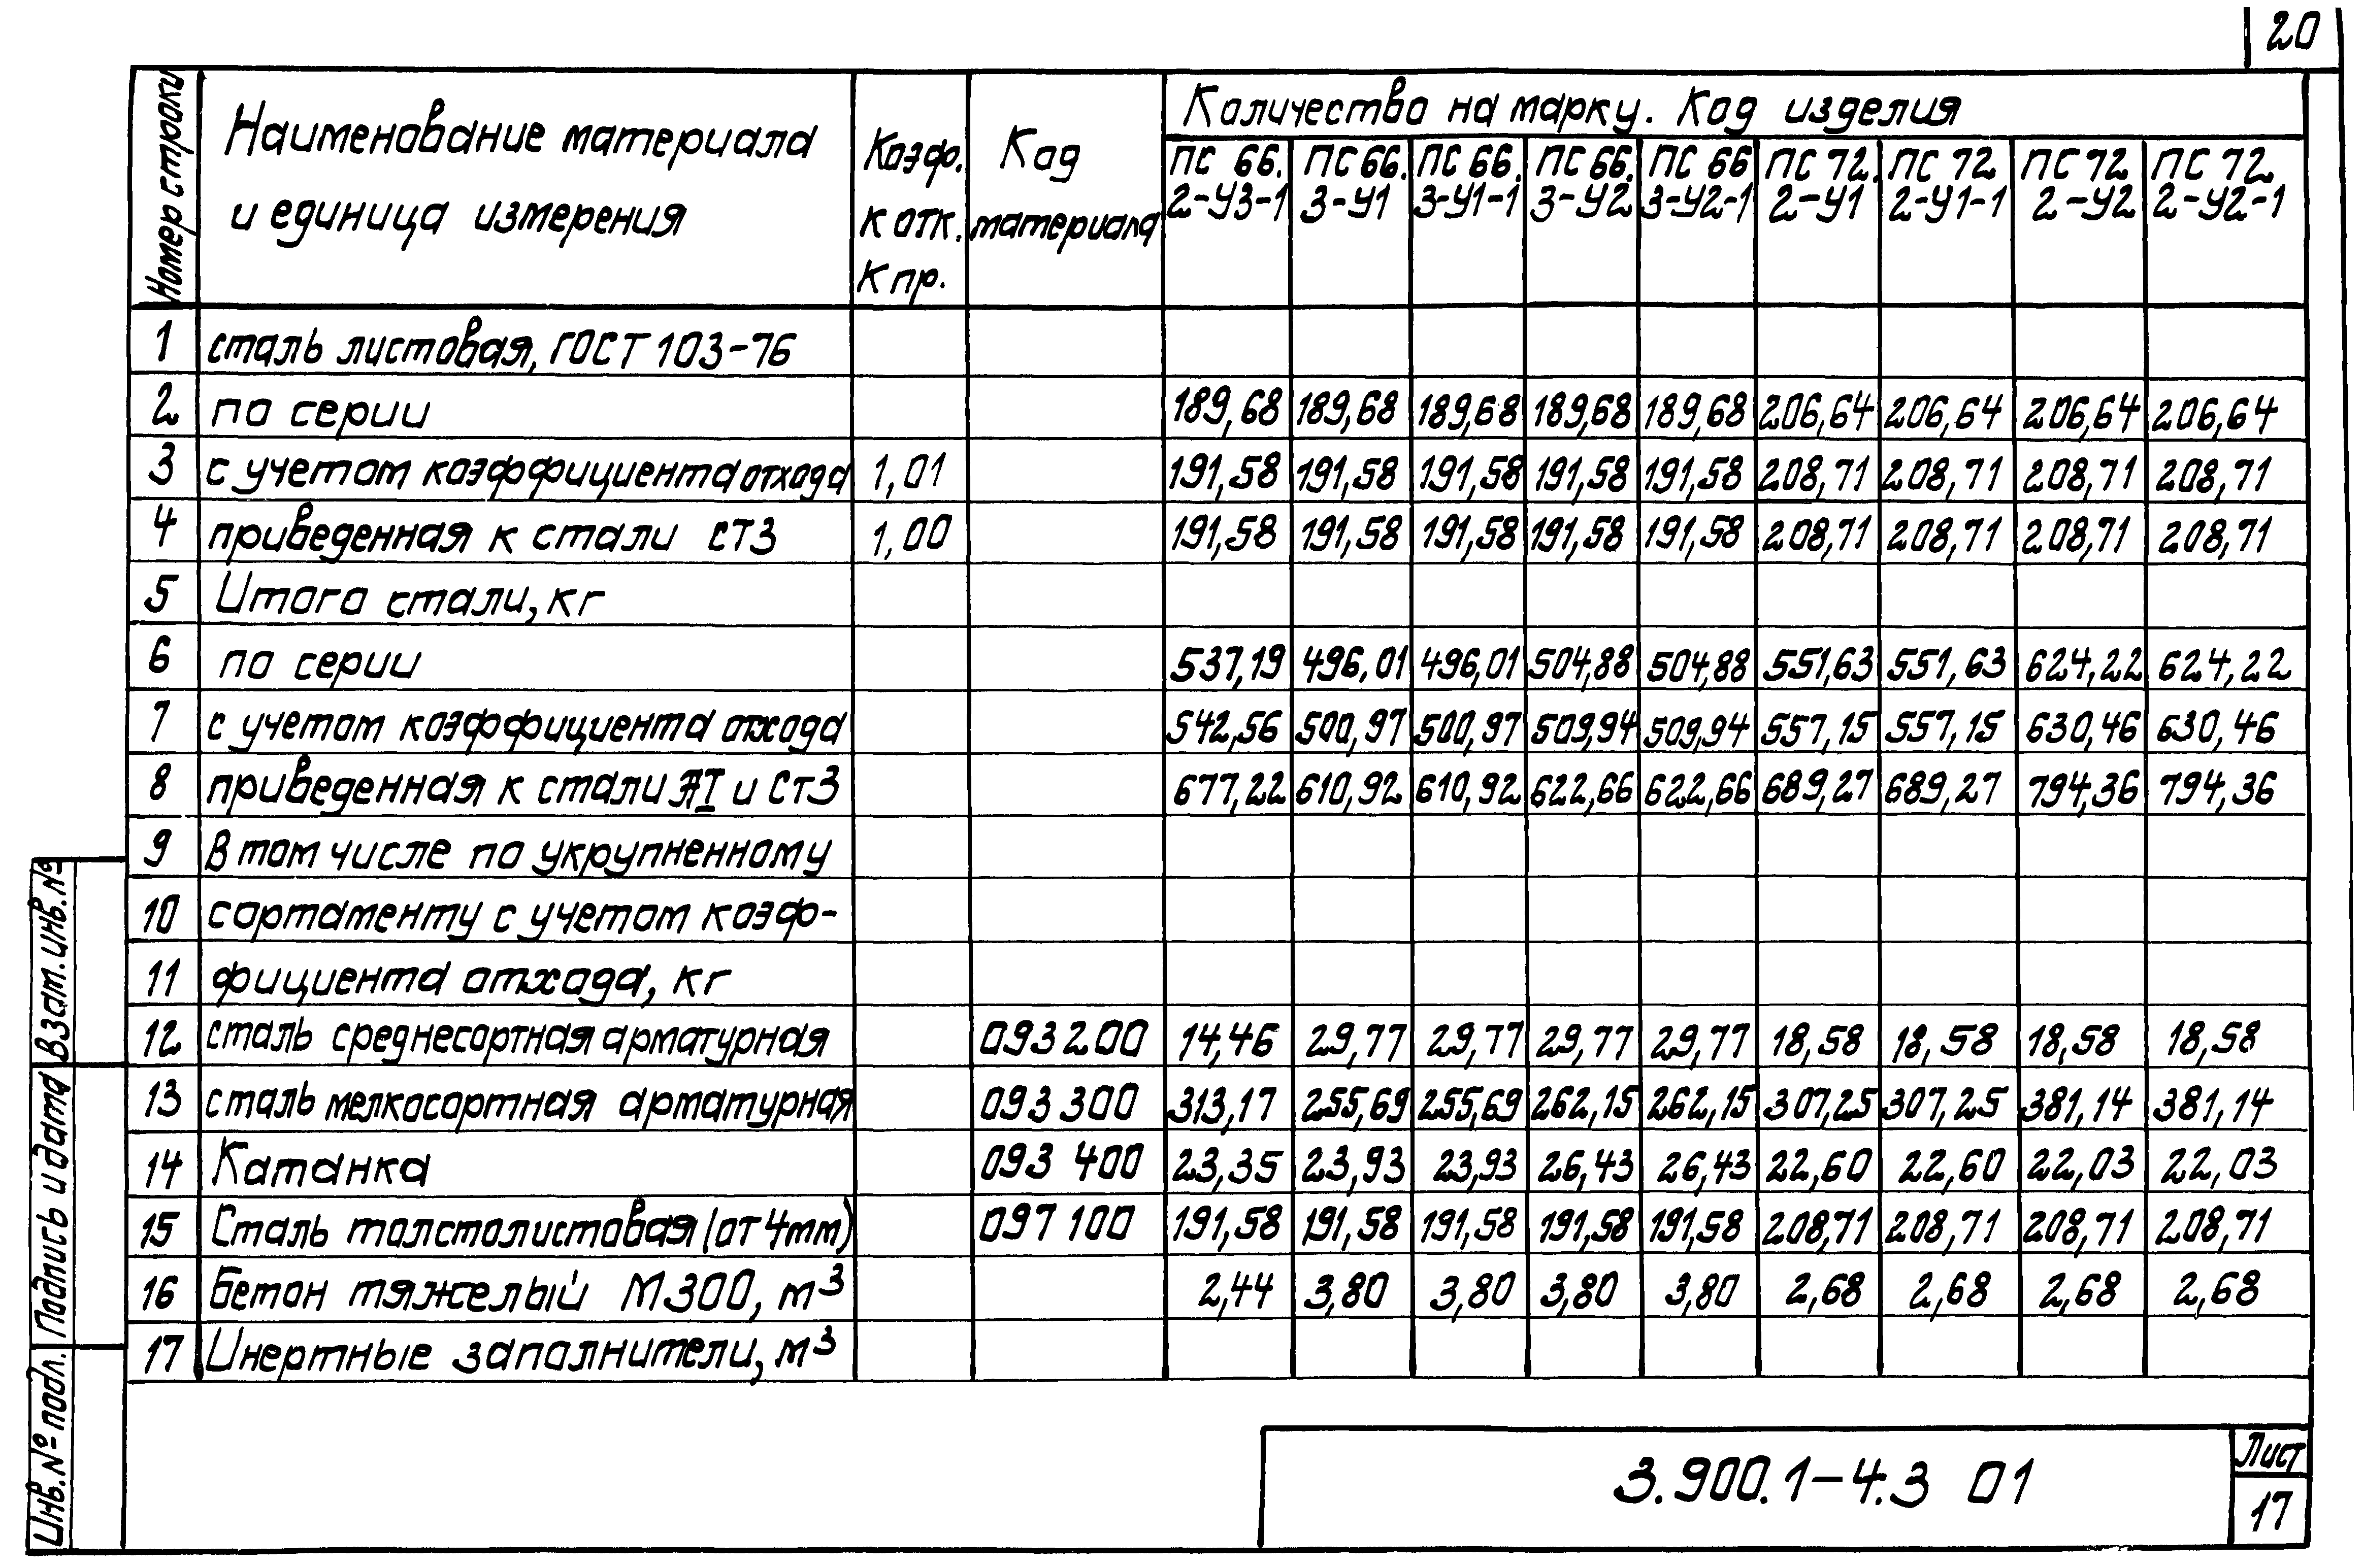 20
Номер строки
Наименование материала
и единица измерения
Коэф.
К отк.
К пр.
Код
материала
Количество на марку. Код изделия
ПС 66. ПС 66. ПС 66. ПС 66. ПС 66 ПС 72. ПС 72 ПС 72 ПС 72.
2-У3-1 3-У1 3-У1-1 3-У2 3-У2-1 2-У1 2-У1-1 2-У2 2-У2-1
1 сталь листовая, ГОСТ 103-76
2 по серии 189,68 189,68 189,68 189,68 189,68 206,64 206,64 206,64 206,64
3 с учетом коэффициента отхода 1,01 191,58 191,58 191,58 191,58 191,58 208,71 208,71 208,71 208,71
4 приведенная к стали СТ3 1,00 191,58 191,58 191,58 191,58 191,58 208,71 208,71 208,71 208,71
5 Итого стали, кг
6 по серии 537,19 496,01 496,01 504,88 504,88 551,63 551,63 624,22 624,22
7 с учетом коэффициента отхода 542,56 500,97 500,97 509,94 509,94 557,15 557,15 630,46 630,46
8 приведенная к стали АI и Ст3 677,22 610,92 610,92 622,66 622,66 689,27 689,27 794,36 794,36
9 В том числе по укрупненному
10 сортаменту с учетом коэф-
11 фициента отхода, кг
12 сталь среднесортная арматурная 093200 14,46 29,77 29,77 29,77 29,77 18,58 18,58 18,58 18,58
13 сталь мелкосортная арматурная 093300 313,17 255,69 255,69 262,15 262,15 307,25 307,25 381,14 381,14
14 Катанка 093 400 23,35 23,93 23,93 26,43 26,43 22,60 22,60 22,03 22,03
15 Сталь толстолистовая (от 4мм) 097 100 191,58 191,58 191,58 191,58 191,58 208,71 208,71 208,71 208,71
16 Бетон тяжелый М300, м³ 2,44 3,80 3,80 3,80 3,80 2,68 2,68 2,68 2,68
17 Инертные заполнители, м³
Взам. инв. №
Подпись и дата
Инв. № подл.
3.900.1-4.3 01
Лист
17